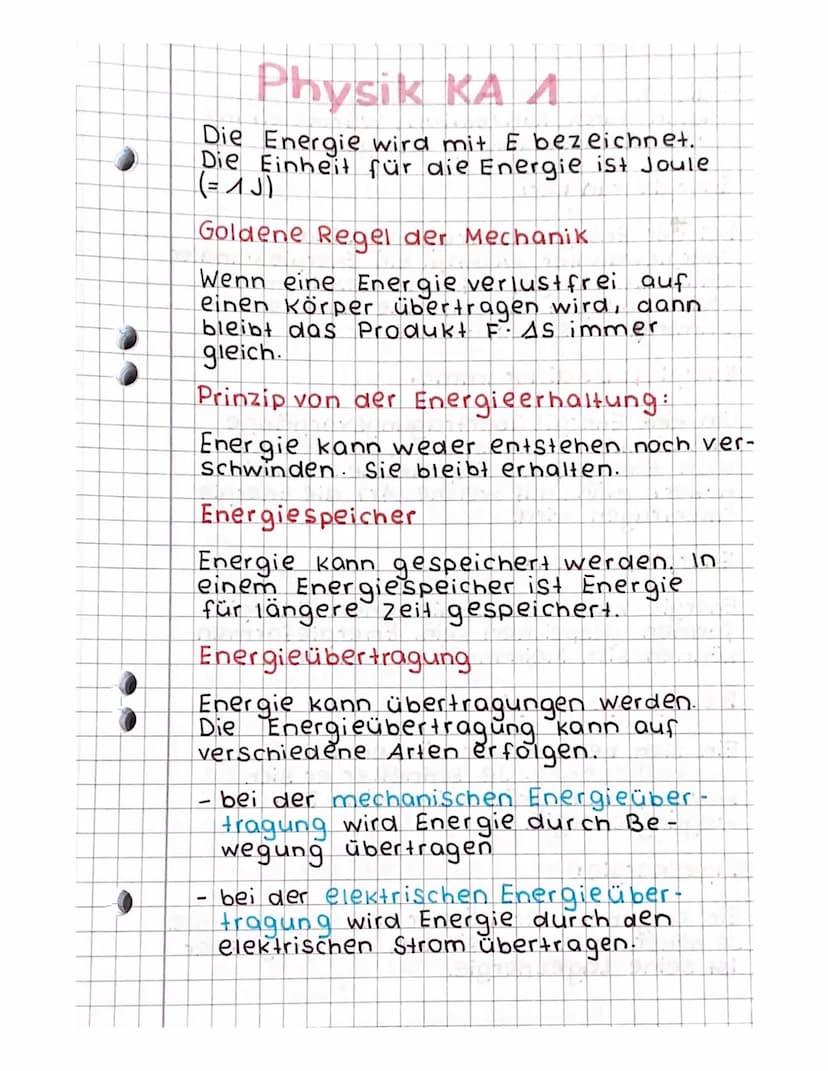 Physik KA 1
Die Energie wird mit E bezeichnet.
Die Einheit für die Energie ist Joule
(= 1 J)
Goldene Regel der Mechanik
Wenn eine Energie verlustfrei auf
einen Körper übertragen wird, dann
bleibt das Produkt F · Δs immer
gleich.
Prinzip von der Energieerhaltung:
Energie kann weder entstehen noch ver-
schwinden. Sie bleibt erhalten.
Energiespeicher
Energie kann gespeichert werden. In
einem Energiespeicher ist Energie
für längere Zeit gespeichert.
Energieübertragung
Energie kann übertragungen werden.
Die Energieübertragung kann auf
verschiedene Arten erfolgen.
- bei der mechanischen Energieüber-
tragung wird Energie durch Be-
wegung übertragen
- bei der elektrischen Energieüber-
tragung wird Energie durch den
elektrischen Strom übertragen.